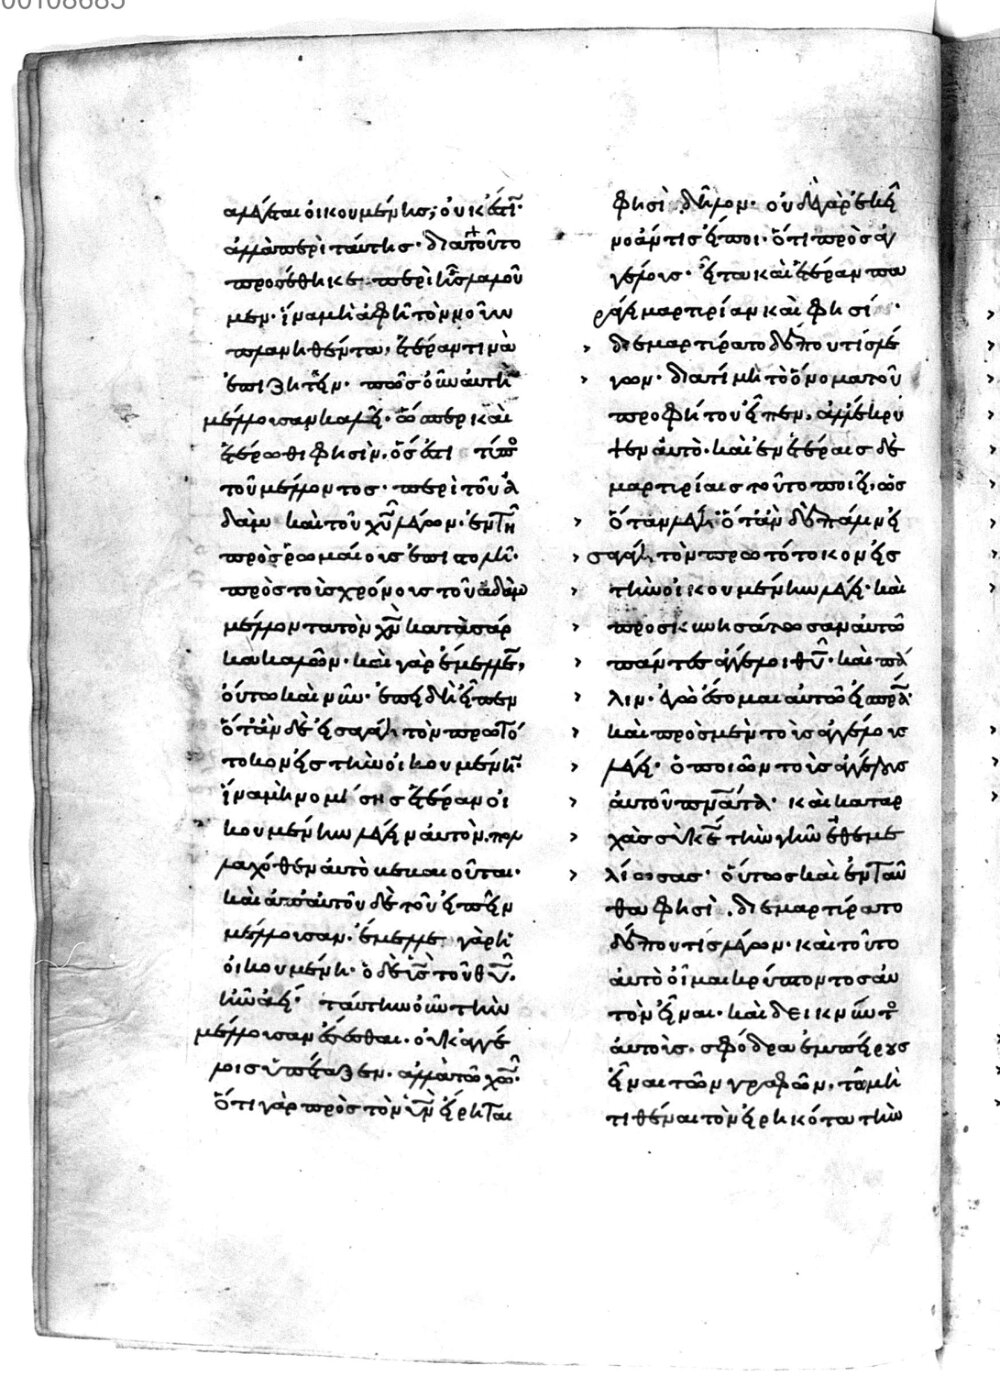 λέγεται οἰκουμένης; οὐκ ἔστιν·
ἀλλὰ περὶ ταύτης· διὰ τοῦτο
προσέθηκε· περὶ ἧς λαλοῦ
μεν· ἵνα μὴ ἀφῆ τὸν νοῦν
πλανηθέντα, ἑτέραν τινὰ
ἐπιζητεῖν· πῶς οὖν αὐτὴν
μέλλουσαν καλεῖ· ὥσπερ καὶ
ἑτέρωθι φησὶν, ὅς ἐστι τύπος
τοῦ μέλλοντος· περὶ τοῦ ἀ
δὰμ καὶ τοῦ χυ λέγων· ἐν τῆ
πρὸς ῥωμαίους ἐπιστολῆ·
πρὸς τοὺς χρόνους τοῦ ἀδὰμ
μέλλοντα τὸν χν κατὰ σάρ
κα καλῶν· καὶ γὰρ ἔμελλεν,
οὕτω καὶ νῦν· ἐπειδὴ εἶπεν
ὅταν δὲ εἰσαγάγη τὸν πρωτό
τοκον εἰς τὴν οἰκουμένην·
ἵνα μὴ νομίσης ἑτέραν οἰ
κουμένην λέγειν αὐτὸν, πολ
λαχόθεν αὐτὸ
καὶ ἀπὸ αὐτοῦ δὲ τοῦ εἰπεῖν
μέλλουσαν· ἔμελλε γὰρ ἡ
οἰκουμένη· ὁ δὲ υἱς τοῦ θυ
ἦν ἀεί· ταύτην οὖν τὴν
μέλλουσαν ἔσεσθαι· οὐκ ἀγγέ
λοις ὑπέταξεν· ἀλλὰ τῶ χω·
ὅτι γὰρ πρὸς τὸν υν εἴρηται
φησὶ δῆλον· οὐδὲ γὰρ ἐκεῖ
νο ἄν τις εἴποι· ὅτι πρὸς ἀγ
γέλους· εἶτα καὶ ἑτέραν πα
ράγει μαρτυρίαν καὶ φησί·
διεμαρτύρατο δέ που τὶς λέ
γων· διατί μὴ τὸ ὄνομα τοῦ
προφήτου εἶπεν, ἀλλ' ἔκρυ
ψεν αὐτὸ· καὶ ἐν ἑτέραις δὲ
μαρτυρίαις τοῦτο ποιεῖ, ὡς
ὅταν λέγη· ὅταν δὲ πάλιν εἰ
σαγάγη τὸν πρωτότοκον εἰς
τὴν οἰκουμένην λέγει· καὶ
προσκυνησάτωσαν αὐτῶ
πάντες ἄγγελοι θυ· καὶ πά
λιν· ἐγὼ ἔσομαι αὐτῶ εἰς πρα·
καὶ πρὸς μὲν τοὺς ἀγγέλους
λέγει· ὁ ποιῶν τοὺς ἀγγέλους
αὐτοῦ πνατα· καὶ καταρ
χὰς σὺ κε τὴν γῆν ἐθεμε
λίωσας· οὕτως καὶ ἐνταῦ
θα φησὶ, διεμαρτύρατο
δέ που τὶς λέγων· καὶ τοῦτο
αὐτὸ οἶμαι κρύπτοντος
τὸν εἶναι· καὶ δεικνῦντος
αὐτοὺς· σφόδρα ἐμπείρους
εἶναι τῶν γραφῶν, τὸ μὴ
τιθέναι τὸν εἰρηκότα τὴν